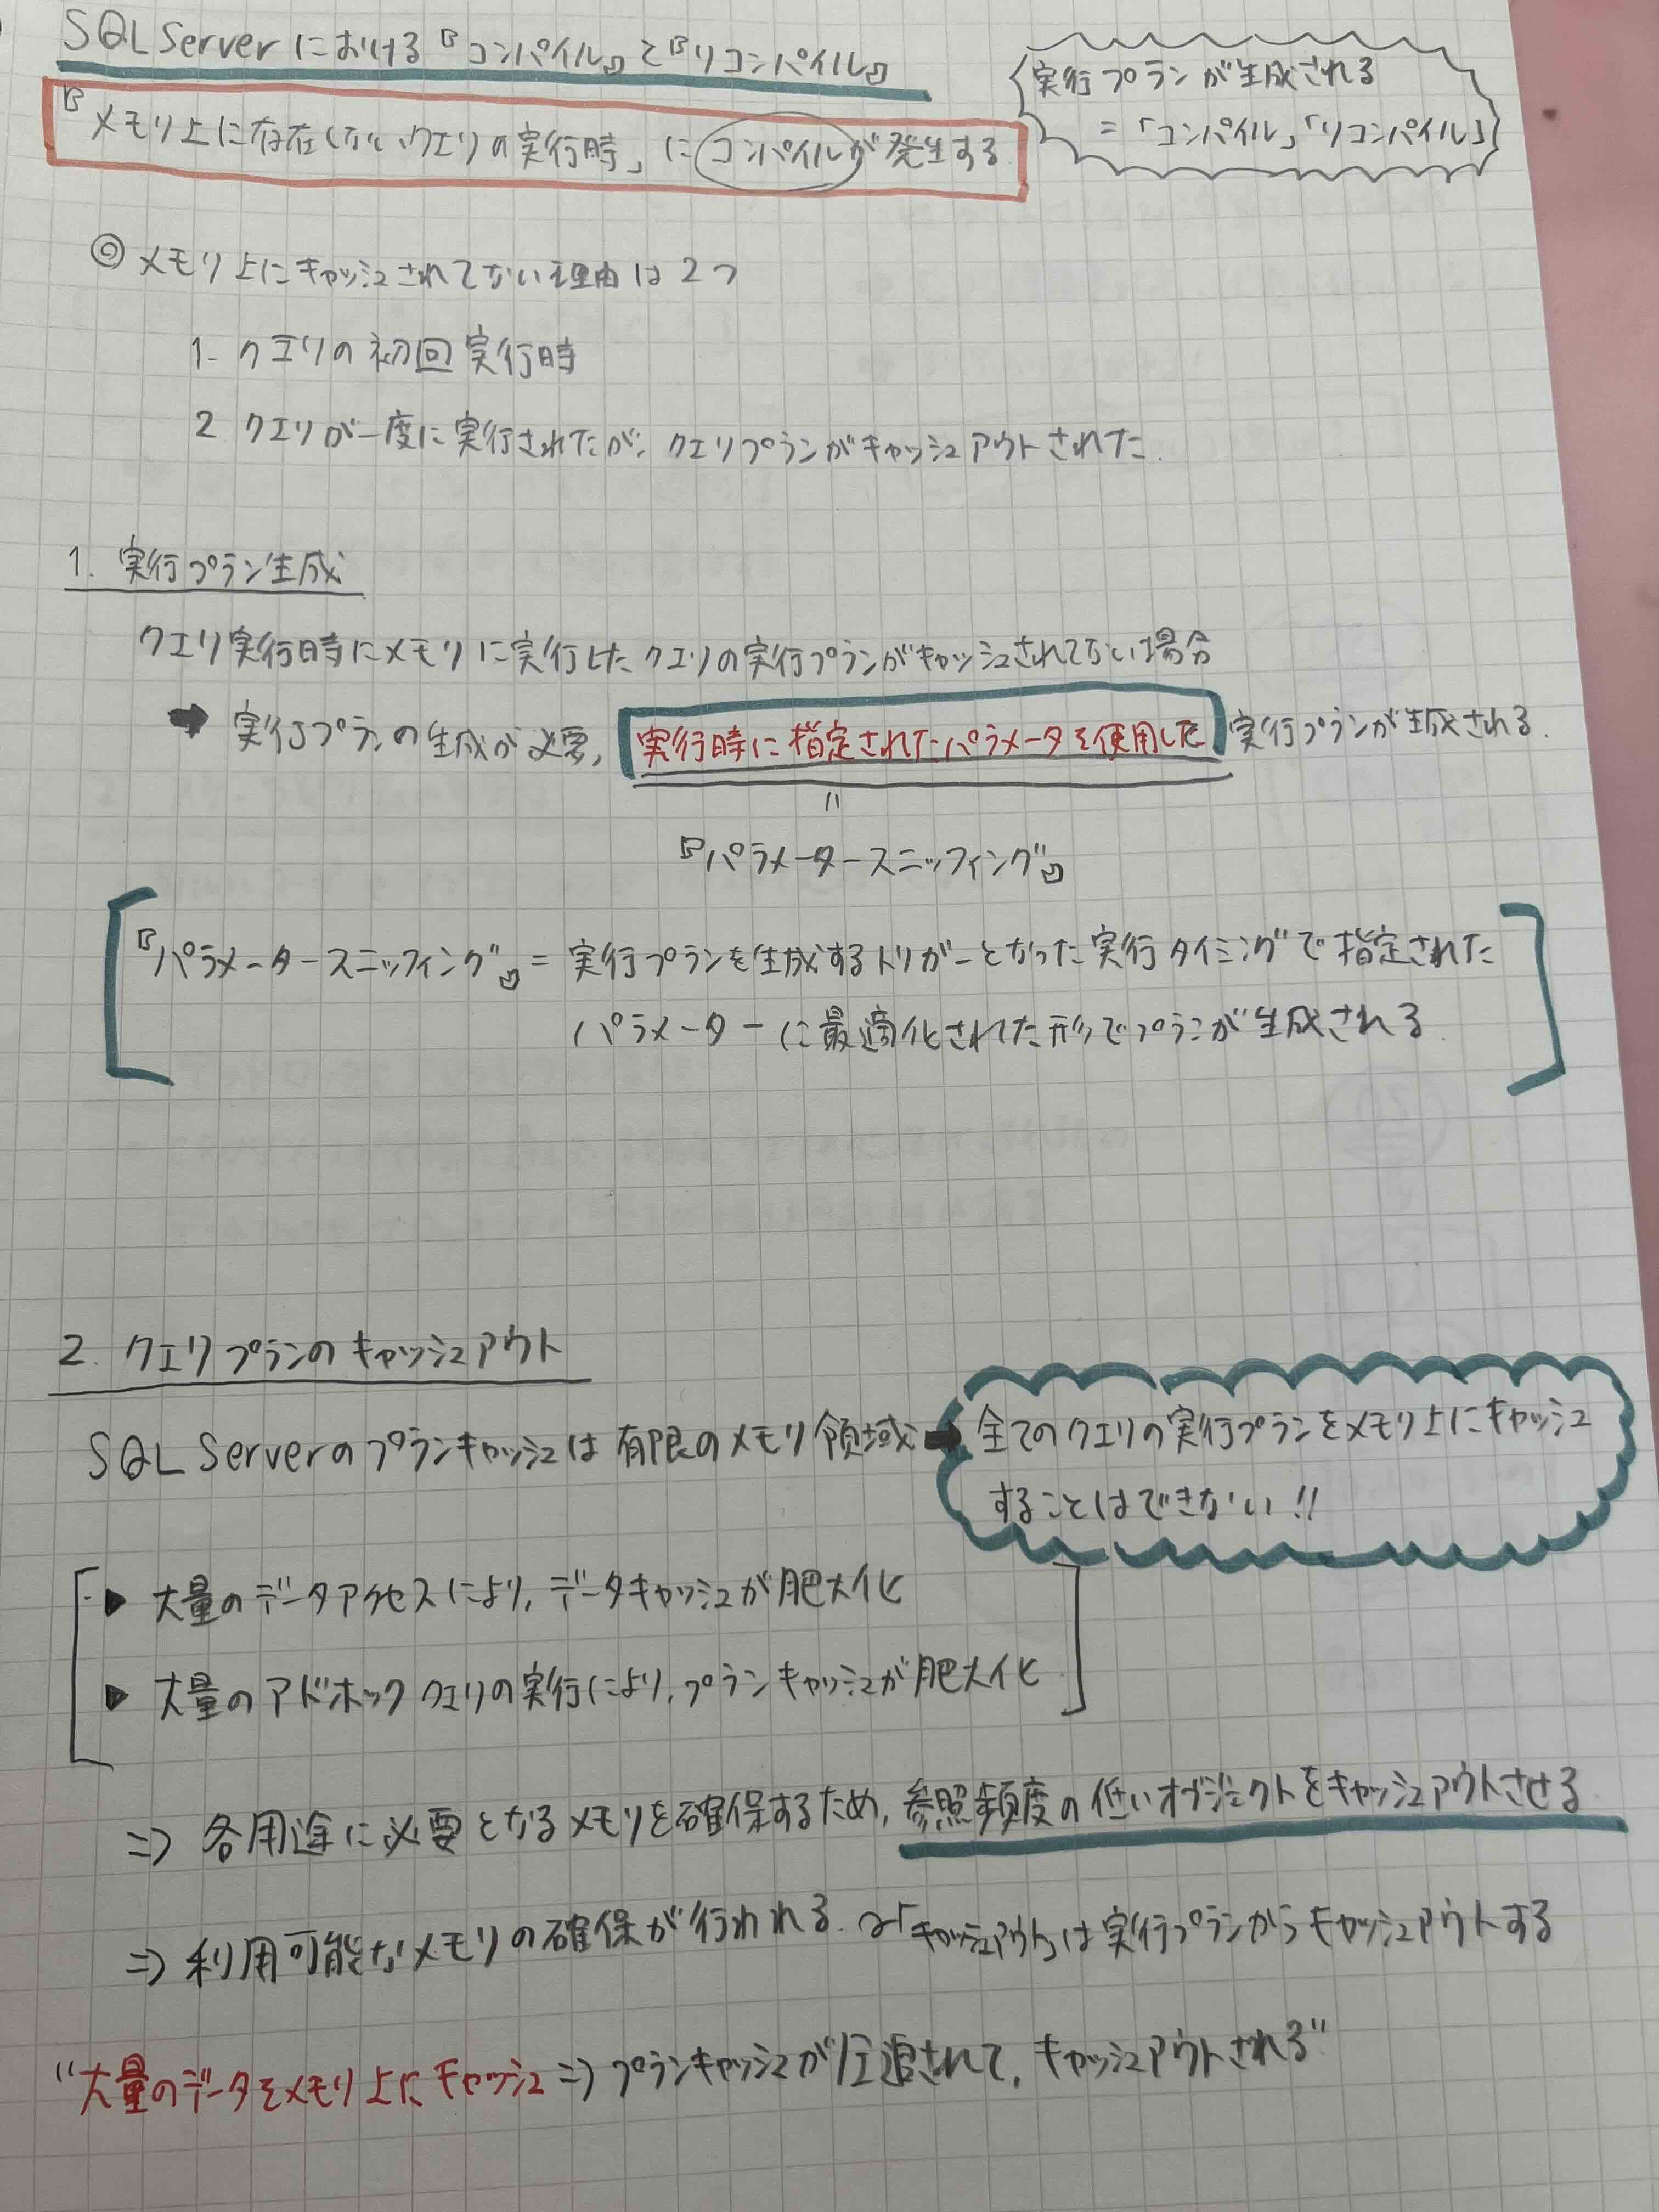 SQL Serverにおける『コンパイル』と『リコンパイル』
実行プランが生成される
=「コンパイル」「リコンパイル」
『メモリ上に存在しないクエリの実行時」にコンパイルが発生する
◎メモリ上にキャッシュされてない理由は2つ
1. クエリの初回実行時
2 クエリが一度に実行されたが、クエリプランがキャッシュアウトされた.
1. 実行プラン生成
クエリ実行時にメモリに実行したクエリの実行プランがキャッシュされてない場合
➡ 実行プランの生成が必要, 実行時に指定されたパラメータを使用した実行プランが生成される.
=
『パラメータースニッフィング』
『パラメータースニッフィング』= 実行プランを生成するトリガーとなった実行タイミングで指定された
パラメーターに最適化された形でプランが生成される
2. クエリプランのキャッシュアウト
SQL Serverのプランキャッシュは有限のメモリ領域 ➡ 全てのクエリの実行プランをメモリ上にキャッシュ
することはできない!!
▶ 大量のデータアクセスにより, データキャッシュが肥大化
▶ 大量のアドホッククエリの実行により, プランキャッシュが肥大化
⇒ 各用途に必要となるメモリを確保するため, 参照頻度の低いオブジェクトをキャッシュアウトさせる
⇒ 利用可能なメモリの確保が行われる.「キャッシュアウト」は実行プランからキャッシュアウトする
"大量のデータをメモリ上にキャッシュ ⇒ プランキャッシュが圧迫されて, キャッシュアウトされる"